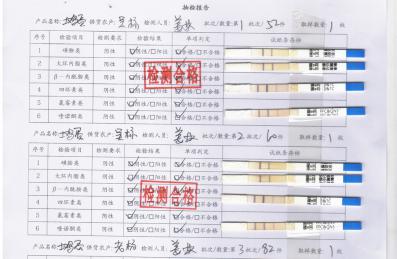 抽检报告
产品名称: 土鸡蛋 供货农户: 检测人员: 批次/数量: 第1 52件 取样数量: 1 枚
序号 检验项目 检测要求 检验结果 单项判定 试纸条存档
1 磺胺类 阴性 ☑阴性/□阳性 ☑合格/□不合格
2 大环内酯类 阴性 ☑阴性/□阳性 ☑合格/□不合格
3 β-内酰胺类 阴性 ☑阴性/□阳性 ☑合格/□不合格
4 四环素类 阴性 ☑阴性/□阳性 ☑合格/□不合格
5 氟霉素类 阴性 ☑阴性/□阳性 ☑合格/□不合格
6 喹诺酮类 阴性 ☑阴性/□阳性 ☑合格/□不合格
检测合格
产品名称: 土鸡蛋 供货农户: 检测人员: 批次/数量: 第2 60件 取样数量: 1 枚
序号 检验项目 检测要求 检验结果 单项判定 试纸条存档
1 磺胺类 阴性 ☑阴性/□阳性 ☑合格/□不合格
2 大环内酯类 阴性 ☑阴性/□阳性 ☑合格/□不合格
3 β-内酰胺类 阴性 ☑阴性/□阳性 ☑合格/□不合格
4 四环素类 阴性 ☑阴性/□阳性 ☑合格/□不合格
5 氟霉素类 阴性 ☑阴性/□阳性 ☑合格/□不合格
6 喹诺酮类 阴性 ☑阴性/□阳性 ☑合格/□不合格
检测合格
产品名称: 土鸡蛋 供货农户: 检测人员: 批次/数量: 第3 82件 取样数量: 1 枚